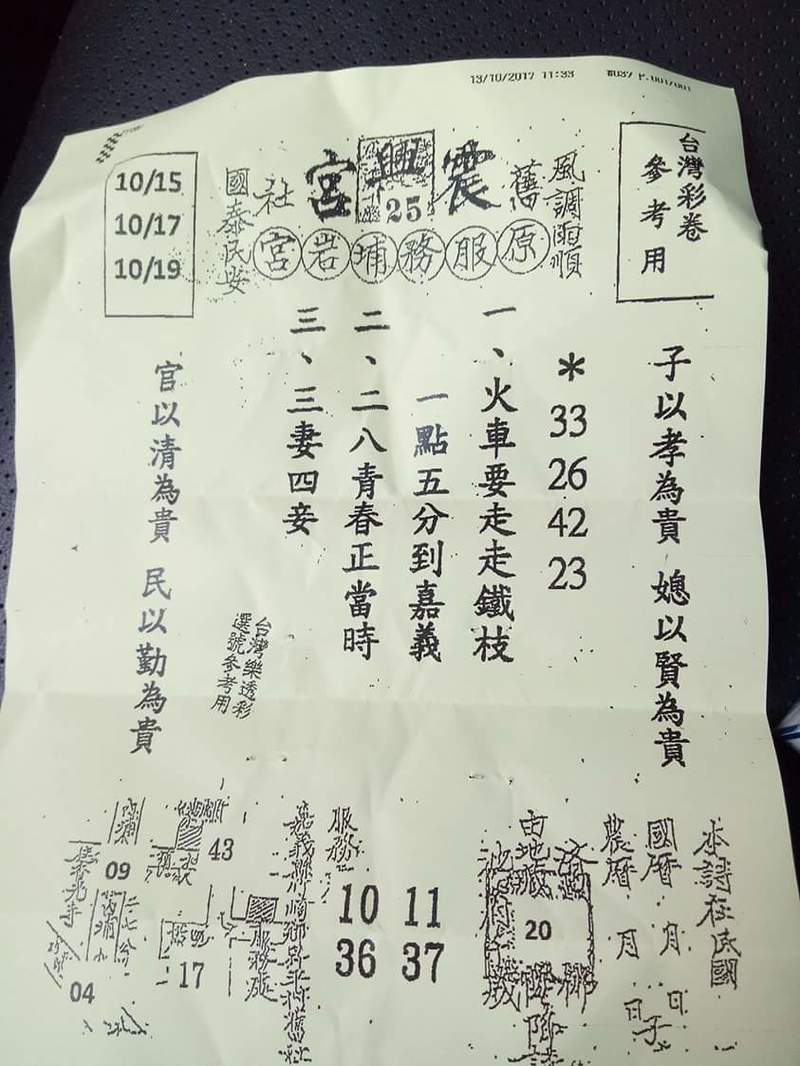 13/10/2017 11:33
台灣彩卷
參考用
風調雨順
舊
震興宮
25
社
原服務埔岩宮
國泰民安
10/15
10/17
10/19
子以孝為貴 媳以賢為貴
*
33
26
42
23
一、火車要走走鐵枝
一點五分到嘉義
二、二八青春正當時
三、三妻四妾
官以清為貴 民以勤為貴
台灣樂透彩
選號參考用
本詩在民國
國曆 月 日
農曆 月 日子
20
服務
10 11
36 37
服務處
43
17
09
04